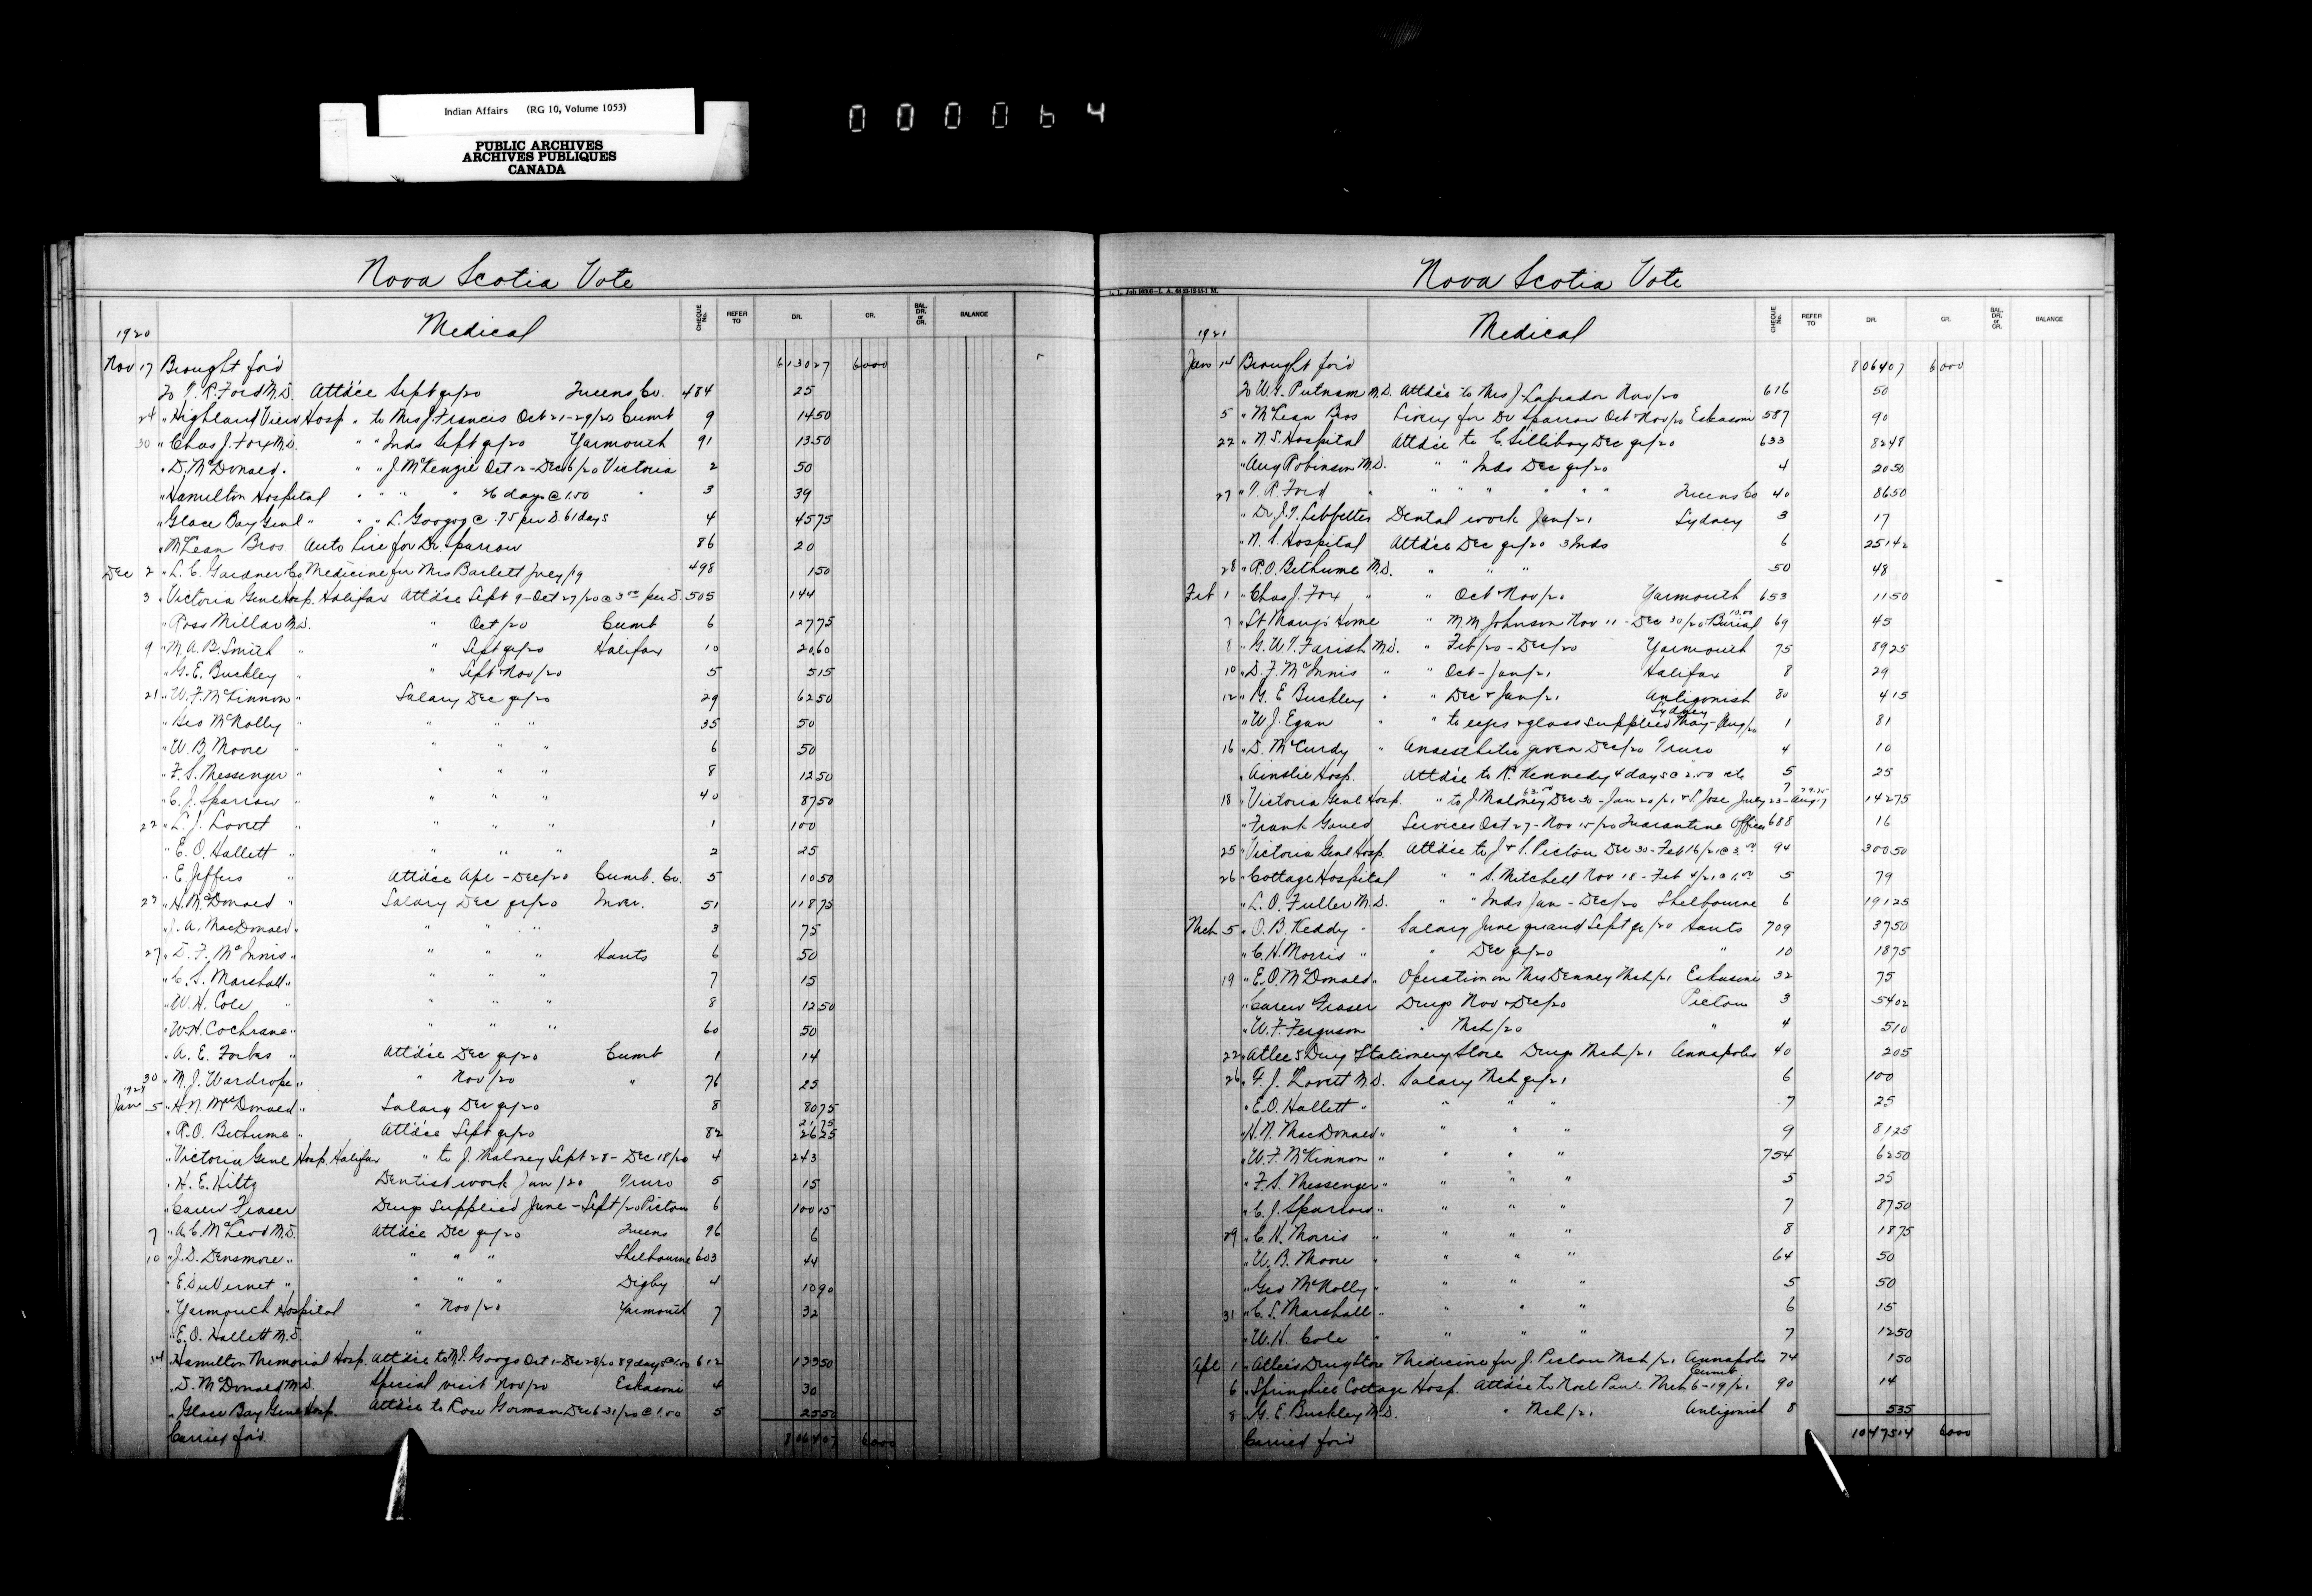 Indian Affairs (RG 10, Volume 1053)
PUBLIC ARCHIVES
ARCHIVES PUBLIQUES
CANADA
000064
Nova Scotia Vote
1920 Medical CHEQUE No. REFER TO DR. CR. BAL. DR. or CR. BALANCE
Nov 17 Brought for'd 613027 6000
To T. R. Ford M.D. Attd'ce Sept qr/20 Queens Co. 484 25
24 " Highland View Hosp " to Mrs J. Francis Oct 21-29/20 Cumb 9 1450
30 " Chas J. Fox M.D. " " Inds Sept qr/20 Yarmouth 91 1350
" D. McDonald " " " J. McKenzie Oct 12-Dec 6/20 Victoria 2 50
" Hamilton Hospital " " " " 26 days @ 1.50 " 3 39
" Glace Bay Genl " " " L. Googoo @ .75 per D. 61 days 4 4575
" McLean Bros. Auto hire for Dr. Sparrow 86 20
Dec 2 " L. C. Gardner Co. Medicine for Mrs Barlett July/19 498 150
3 " Victoria Genl Hosp. Halifax Attd'ce Sept 9-Oct 27/20 @ 3.00 per D. 505 144
" Ross Millar M.D. " Oct/20 Cumb 6 2775
9 " M. A. B. Smith " " Sept qr/20 Halifax 10 2060
" G. E. Buckley " " Sept Nov/20 5 515
21 " W. F. McKinnon " Salary Dec qr/20 29 6250
" Geo McNolly " " " " 35 50
" W. B. Moore " " " " 6 50
" F. S. Messenger " " " " 8 1250
" C. J. Sparrow " " " " 40 8750
22 " L. J. Lovett " " " " 1 100
" E. O. Hallett " " " " 2 25
" E. Jeffers " Attd'ce Apl-Dec/20 Cumb. Co. 5 1050
23 " H. McDonald " Salary Dec qr/20 Inver. 51 11875
" J. A. MacDonald " " " " 3 75
27 " D. F. McInnis " " " " Hants 6 50
" C. S. Marshall " " " " 7 15
" W. H. Cole " " " " 8 1250
" W. H. Cochrane " " " " 60 50
" A. E. Forbes " Attd'ce Dec qr/20 Cumb 1 14
30 " M. J. Wardrope " " Nov/20 " 76 25
1921
Jan 5 " H. N. MacDonald " Salary Dec qr/20 8 8075
" R. O. Bethune " Attd'ce Sept qr/20 82 2625
" Victoria Genl Hosp. Halifax " to J. Maloney Sept 28-Dec 18/20 4 243
" H. E. Hiltz Dentist work Jan/20 Truro 5 15
" Carew Fraser Drugs supplied June-Sept/20 Pictou 6 10015
7 " A. C. McLeod M.D. Attd'ce Dec qr/20 Queens 96 6
10 " J. D. Densmore " " " " Shelbourne 603 44
" E. DuVernet " " " " Digby 4 1090
" Yarmouth Hospital " Nov/20 Yarmouth 7 32
" E. O. Hallett M.D. "
14 " Hamilton Memorial Hosp. Attd'ce to M. S. Googo Oct 1-Dec 28/20 89 days @ 1.50 612 13350
" D. McDonald M.D. Special visit Nov/20 Eskasoni 4 30
" Glace Bay Genl Hosp. Attd'ce to Rose Gorman Dec 6-31/20 @ 1.00 5 2550
Carried for'd 806407 6000
Nova Scotia Vote
1921 Medical CHEQUE No. REFER TO DR. CR. BAL. DR. or CR. BALANCE
Jan 14 Brought for'd 806407 6000
To W. G. Putnam M.D. Attd'ce to Mrs J. Labrador Nov/20 616 50
5 " McLean Bros Livery for Dr Sparrow Oct Nov/20 Eskasoni 587 90
22 " N. S. Hospital Attd'ce to C. Silliboy Dec qr/20 633 8248
" Aug Robinson M.D. " " Inds Dec qr/20 4 2050
27 " T. R. Ford " " " " " " " Queens Co 40 8650
" Dr J. T. Lebbetter Dental work Jan/21 Sydney 3 17
" N. S. Hospital Attd'ce Dec qr/20 3 Inds 6 25142
28 " R. O. Bethune M.D. " " " 50 48
Feb 1 " Chas J. Fox " " Oct Nov/20 Yarmouth 653 1150
7 " St Mary's Home " M. M. Johnson Nov 11-Dec 30/20 Burial 10.00 69 45
8 " G. W. T. Farish M.D. " Feb/20-Dec/20 Yarmouth 75 8925
10 " D. F. McInnis " " Oct-Jan/21 Halifax 8 29
12 " G. E. Buckley " " Dec & Jan/21 Antigonish 80 415
" W. J. Egan " " to eyes & glass supplied May-Aug/20 Sydney 1 81
16 " D. McCurdy " Anaesthetic given Dec/20 Truro 4 10
" Ainslie Hosp. Attd'ce to R. Kennedy 4 days @ 2.50 etc 5 25
18 " Victoria Genl Hosp. " to J. Maloney Dec 30-Jan 20/21 & S. Jose July 23-Aug 17 7 14275
" Frank Gaued Services Oct 27-Nov 15/20 Quarantine Officer 688 16
25 " Victoria Genl Hosp. Attd'ce to J. & S. Pictou Dec 30-Feb 16/21 @ 3.00 94 30050
26 " Cottage Hospital " " S. Mitchell Nov 18-Feb 4/21 @ 1.00 5 79
" L. O. Fuller M.D. " " Inds Jan-Dec/20 Shelbourne 6 19125
Mch 5 " O. B. Keddy " Salary June qr and Sept qr/20 Hants 709 3750
" C. H. Morris " " Dec qr/20 " 10 1875
19 " E. O. McDonald " Operation on Mrs Denney Mch/21 Eskasoni 32 75
" Carew Fraser Drugs Nov & Dec/20 Pictou 3 5402
" W. F. Ferguson " Mch/20 " 4 510
22 " Atlee's Drug & Stationery Store Drugs Mch/21 Annapolis 40 205
26 " L. J. Lovett M.D. Salary Mch qr/21 6 100
" E. O. Hallett " " " " 7 25
" H. N. MacDonald " " " " 9 8125
" W. F. McKinnon " " " " 754 6250
" F. S. Messenger " " " " 5 25
" C. J. Sparrow " " " " 7 8750
29 " C. H. Morris " " " " 8 1875
" W. B. Moore " " " " 64 50
" Geo McNolly " " " " 5 50
31 " C. S. Marshall " " " " 6 15
" W. H. Cole " " " " 7 1250
Apl 1 " Atlee's Drug Store Medicine for J. Pictou Mch/21 Annapolis 74 150
6 " Springhill Cottage Hosp. Attd'ce to Noel Paul Mch 6-19/21 Cumb 90 14
8 " G. E. Buckley M.D. " Mch/21 Antigonish 8 535
Carried for'd 1047504 6000